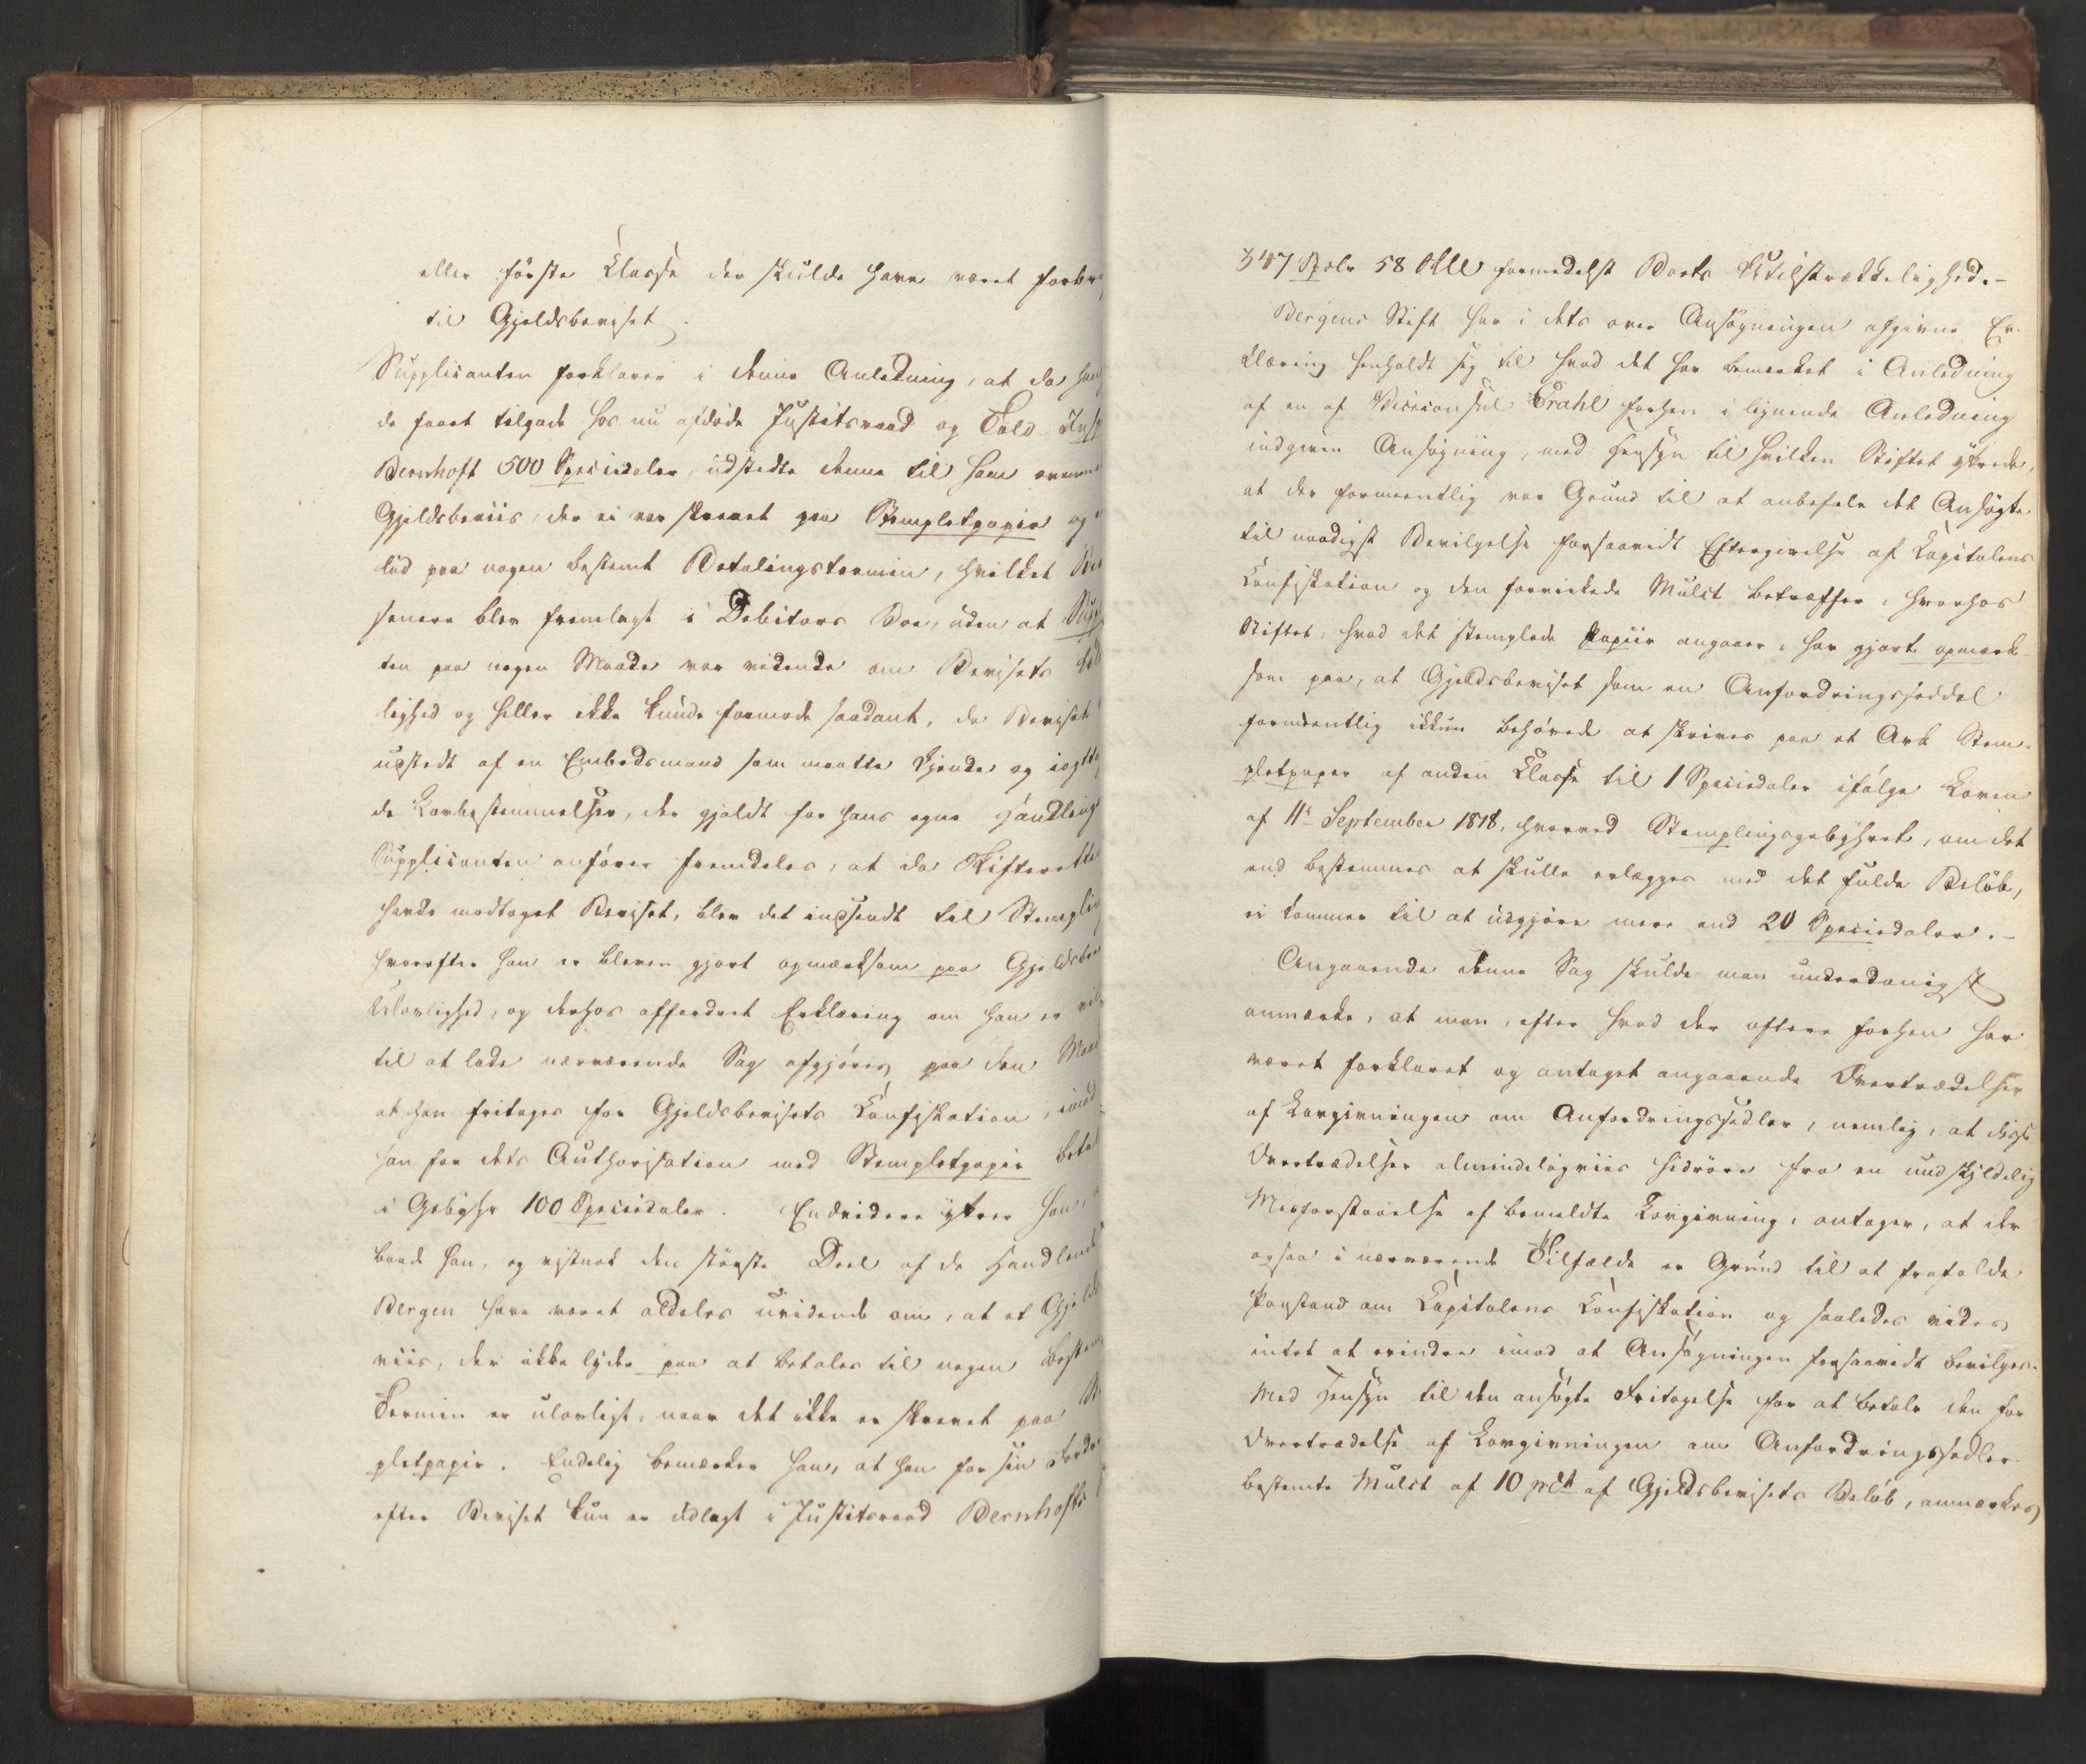 eller förste Klasse der skulde have været forbru
til Gjeldsbeviset.
Supplicanten forklarer i denne Anledning, at da han
de faaet tilgode hos nu afdøde Justitsraad og Told Insp
Bernhoft 500 Speciedaler, udstedte denne til ham ovenme
Gjeldsbeviis, der ei var skrevet paa Stempletpapir og
lød paa nogen bestemt Betalingstermin, hvilket Bev
senere blev fremlagt i Debitors Boe, uden at Supp
ten paa nogen Maade var vidende om Bevisets Ulo
lighed og heller ikke kunde formode saadant, da Beviset
udstedt af en Embedsmand som maatte kjende og iagtta
de Lovbestemmelser, der gjaldt for hans egne Handling
Supplicanten anfører fremdeles, at da Skifteretten
havde modtaget Beviset, blev det indsendt til Stempling
hvorefter han er bleven gjort opmærksom paa Gjeldsbev
Ulovlighed, og derhos affordret Erklæring om han er vil
til at lade nærværende Sag afgjøres paa den Maad
at han fritages for Gjeldsbevisets Confiskation, imod
han for dets Authorisation med Stempletpapir betal
i Gebyhr 100 Speciedaler. Endvidere yttrer han, a
baade han, og vistnok den største Deel af de Handlende
Bergen have været aldeles uvidende om, at et Gjelds
viis, der ikke lyder paa at betales til nogen bestem
Termin er ulovligt, naar det ikke er skrevet paa St
pletpapir. Endelig bemærker han, at han for sin Fordr
efter Beviset kun er udlagt i Justitsraad Bernhofts
347 Spdlr 58 Skll formedelst Boets Utilstrækkelighed.-
Bergens Stift har i dets over Ansøgningen afgivne Er-
klæring henholdt sig til hvad det har bemærket i Anledning
af en af Viceconsul Krahl forhen i lignende Anledning
indgiven Ansøgning, med Hensyn til hvilken Stiftet yttrede,
at der formeentlig var Grund til at anbefale det Ansøgte
til naadigst Bevilgelse forsaavidt Eftergivelse af Capitalens
Confiskation og den forvirkede Mulct betræffer, hvorhos
Stiftet, hvad det stemplede Papiir angaaer, har gjort opmærk-
som paa, at Gjeldsbeviset som en Anfordringsseddel
formeentlig ikkun behøvede at skrives paa et Ark Stem-
pletpaper af anden Klasse til 1 Speciedaler ifølge Loven
af 11te September 1818, hvorved Stemplingsgebyhret, om det
end bestemmes at skulle erlægges med det fulde Beløb,
ei kommer til at udgjøre mere end 20 Speciedaler.-
Angaaende denne Sag skulde man underdanigst
anmærke, at man, efter hvad der oftere forhen har
været forklaret og antaget angaaende Overtrædelser
af Lovgivningen om Anfordringssedler, nemlig, at disse
Overtrædelser almindeligviis hidrøre fra en undskyldelig
Misforstaaelse af bemeldte Lovgivning, antager, at der
ogsaa i nærværende Tilfælde er Grund til at frafalde
Paastand om Capitalens Confiskation og saaledes vides
intet at erindre imod at Ansøgningen forsaavidt bevilges.
Med Hensyn til den ansøgte Fritagelse for at betale den for
Overtrædelse af Lovgivningen om Anfordringssedler
bestemte Mulct af 10 pCt af Gjeldsbevisets Beløb, anmærkes